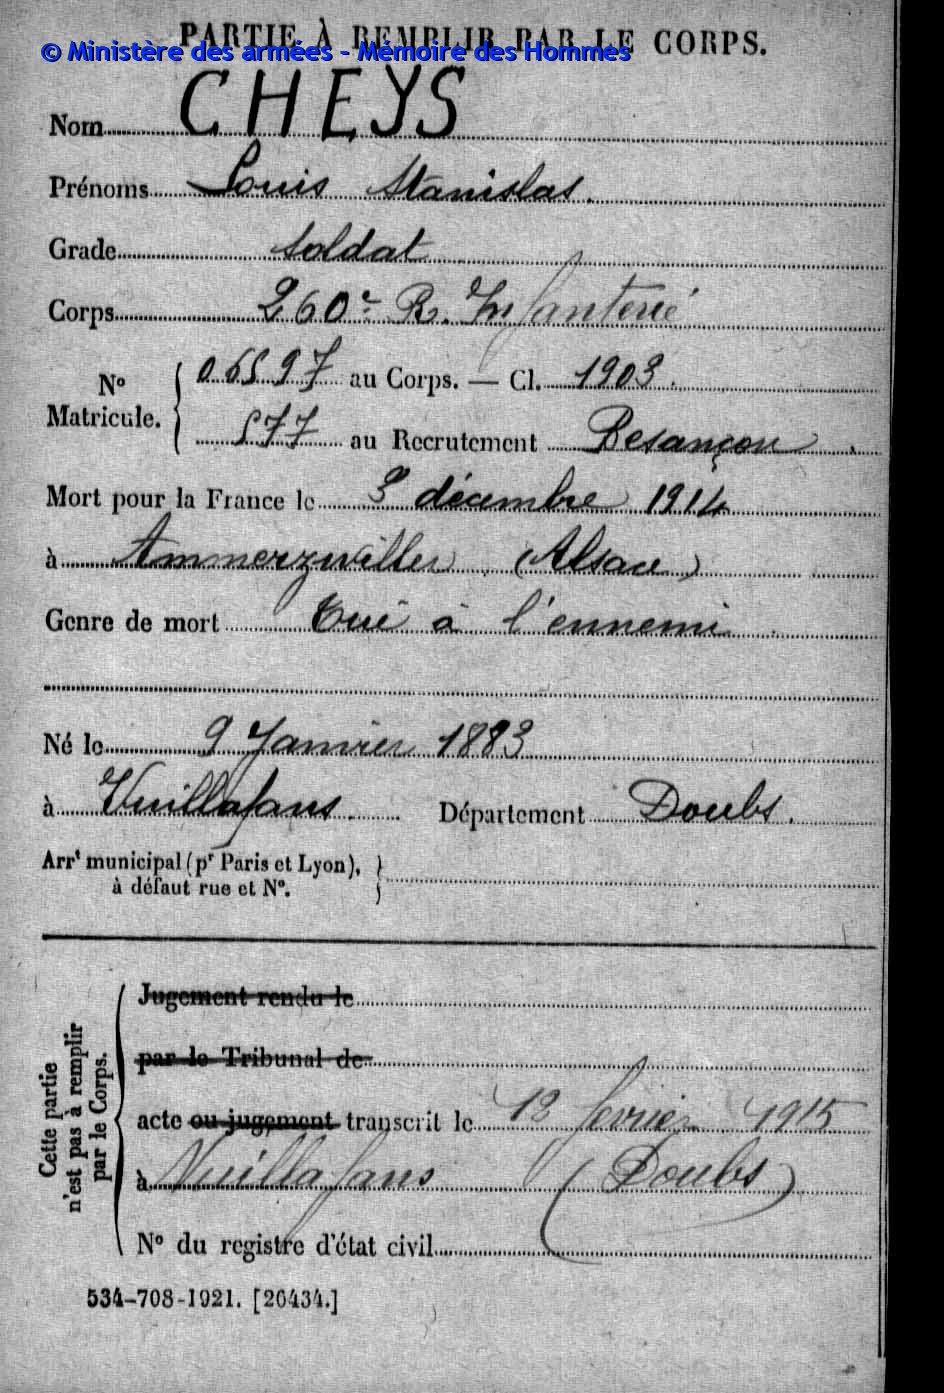 PARTIE À REMPLIR PAR LE CORPS.
© Ministère des armées - Mémoire des Hommes
Nom CHEYS
Prénoms Louis Stanislas.
Grade soldat
Corps 260e R. Infanterie
No Matricule. { 06597 au Corps. — Cl. 1903.
577 au Recrutement Besançon.
Mort pour la France le 3 décembre 1914
à Ammerzwiller (Alsace)
Genre de mort Tué à l'ennemi.
Né le 9 Janvier 1883
à Vuillafans. Département Doubs.
Arrt municipal (pr Paris et Lyon),
à défaut rue et No.
Cette partie n'est pas à remplir par le Corps.
Jugement rendu le
par le Tribunal de
acte ou jugement transcrit le 12 février 1915
à Vuillafans (Doubs)
No du registre d'état civil
534-708-1921. [26434.]